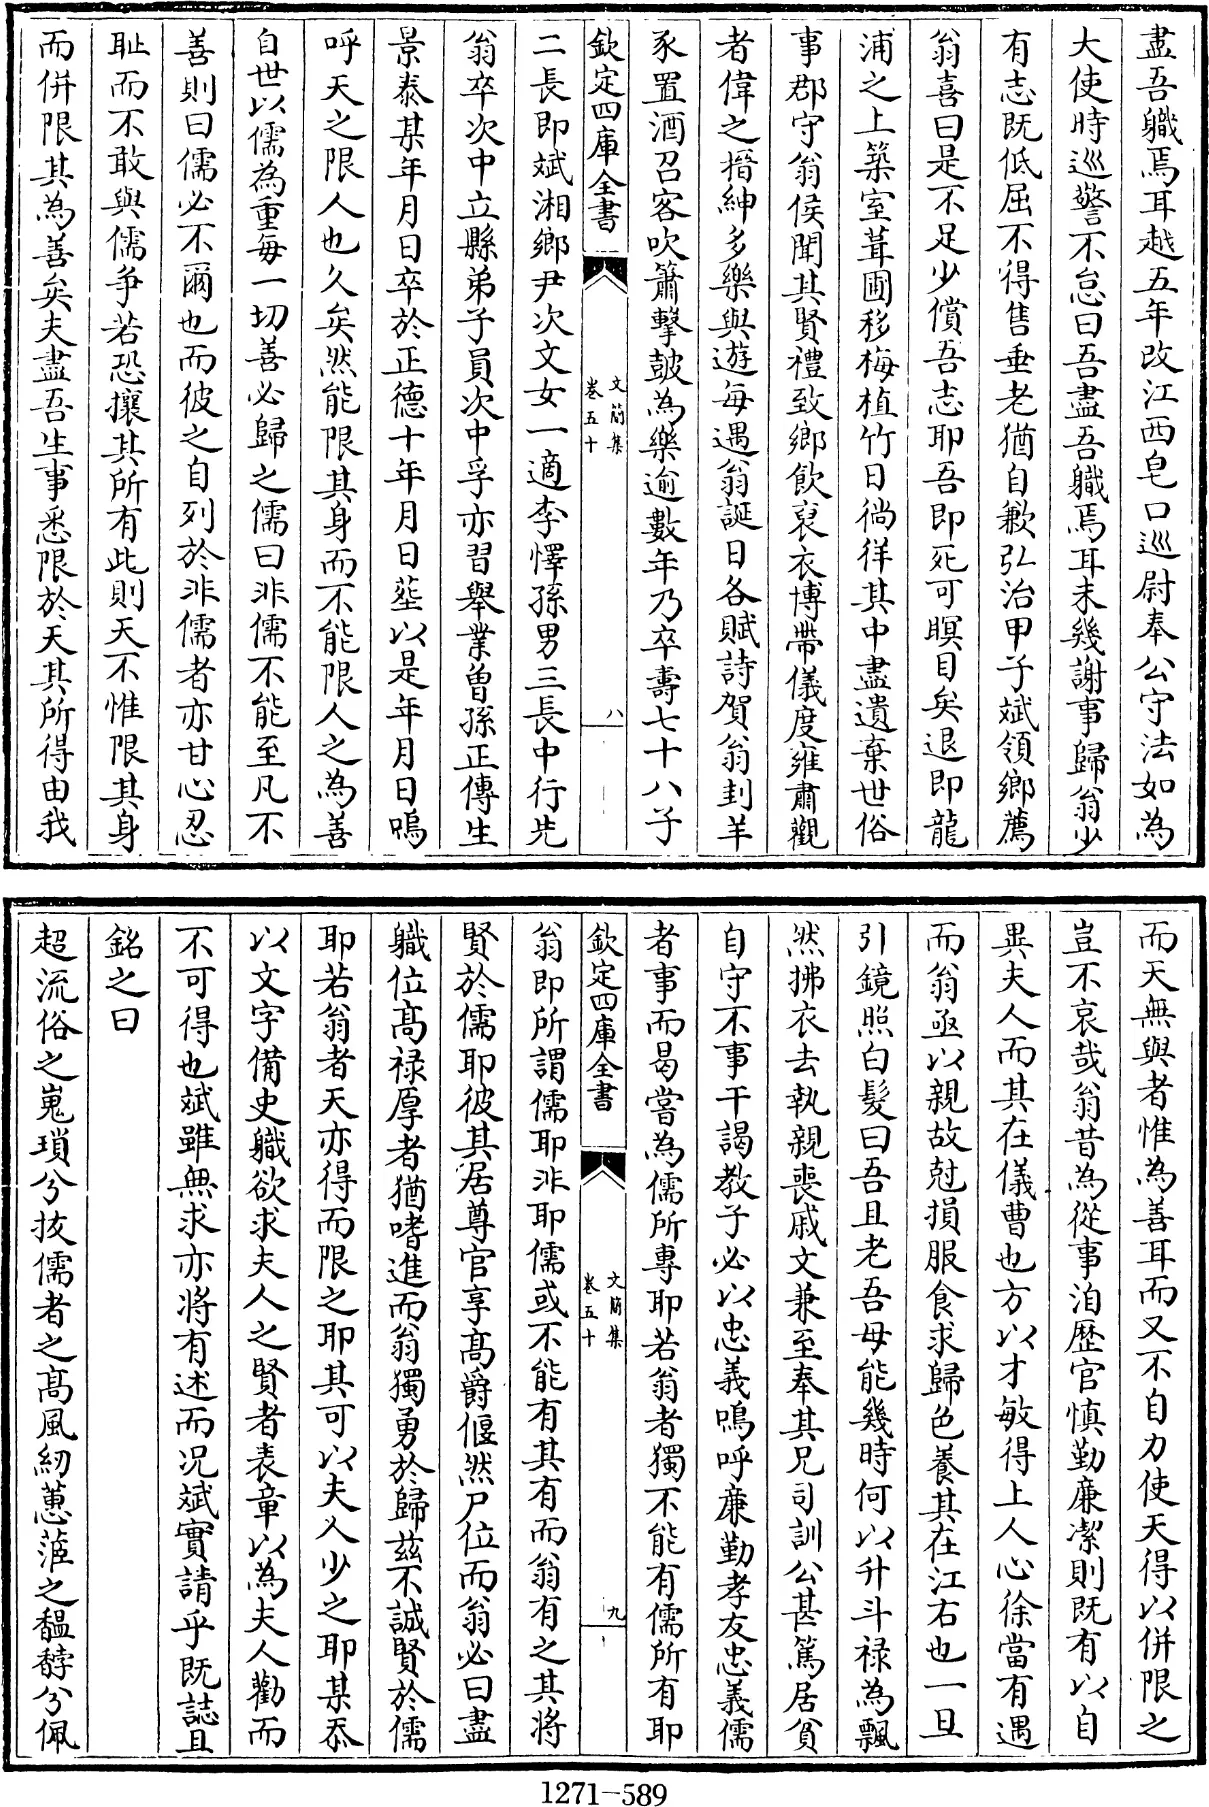 盡吾職焉耳越五年改江西皂口巡尉奉公守法如為
大使時巡警不怠曰吾盡吾職焉耳未幾謝事歸翁少
有志既低屈不得售垂老猶自歉弘治甲子斌領鄉薦
翁喜曰是不足少償吾志耶吾即死可瞑目矣退即龍
浦之上築室葺圃移梅植竹日徜徉其中盡遺棄世俗
事郡守翁侯聞其賢禮致鄉飲裒衣博帶儀度雍肅觀
者偉之搢紳多樂與遊每遇翁誕日各賦詩賀翁刲羊
豕置酒召客吹簫擊鼓為樂逾數年乃卒壽七十八子
欽定四庫全書
文簡集
卷五十
八
二長即斌湘鄉尹次文女一適李懌孫男三長中行先
翁卒次中立縣弟子員次中孚亦習舉業曾孫正傳生
景泰某年月日卒於正德十年月日葬以是年月日嗚
呼天之限人也久矣然能限其身而不能限人之為善
自世以儒為重每一切善必歸之儒曰非儒不能至凡不
善則曰儒必不爾也而彼之自列於非儒者亦甘心忍
恥而不敢與儒爭若恐攘其所有此則天不惟限其身
而併限其為善矣夫盡吾生事悉限於天其所得由我
而天無與者惟為善耳而又不自力使天得以併限之
豈不哀哉翁昔為從事洎歷官慎勤廉潔則既有以自
異夫人而其在儀曹也方以才敏得上人心徐當有遇
而翁亟以親故尅損服食求歸色養其在江右也一旦
引鏡照白髮曰吾且老吾母能幾時何以升斗祿為飄
然拂衣去執親喪戚文兼至奉其兄司訓公甚篤居貧
自守不事干謁教子必以忠義嗚呼廉勤孝友忠義儒
者事而曷嘗為儒所專耶若翁者獨不能有儒所有耶
欽定四庫全書
文簡集
卷五十
九
翁即所謂儒耶非耶儒或不能有其有而翁有之其將
賢於儒耶彼其居尊官享高爵偃然尸位而翁必曰盡
職位高祿厚者猶嗜進而翁獨勇於歸茲不誠賢於儒
耶若翁者天亦得而限之耶其可以夫人少之耶某忝
以文字備史職欲求夫人之賢者表章以為夫人勸而
不可得也斌雖無求亦將有述而况斌實請乎既誌且
銘之曰
超流俗之嵬瑣兮拔儒者之高風紉蕙茝之馧馞兮佩
1271—589